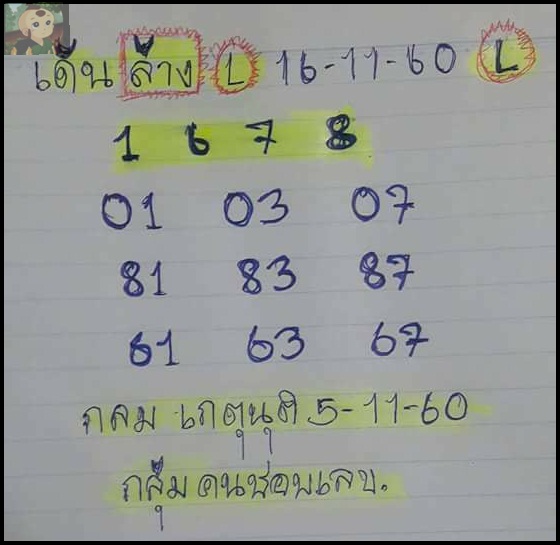 เด็น ล้าง L 16-11-60 L
1 6 7 8
01 03 07
81 83 87
61 63 67
กลม 5-11-60
กลุ่มคนชอบเลข.